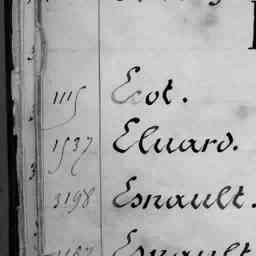 1115 Ecot.
1537 Eluard.
3198 Esnault.
Esnault